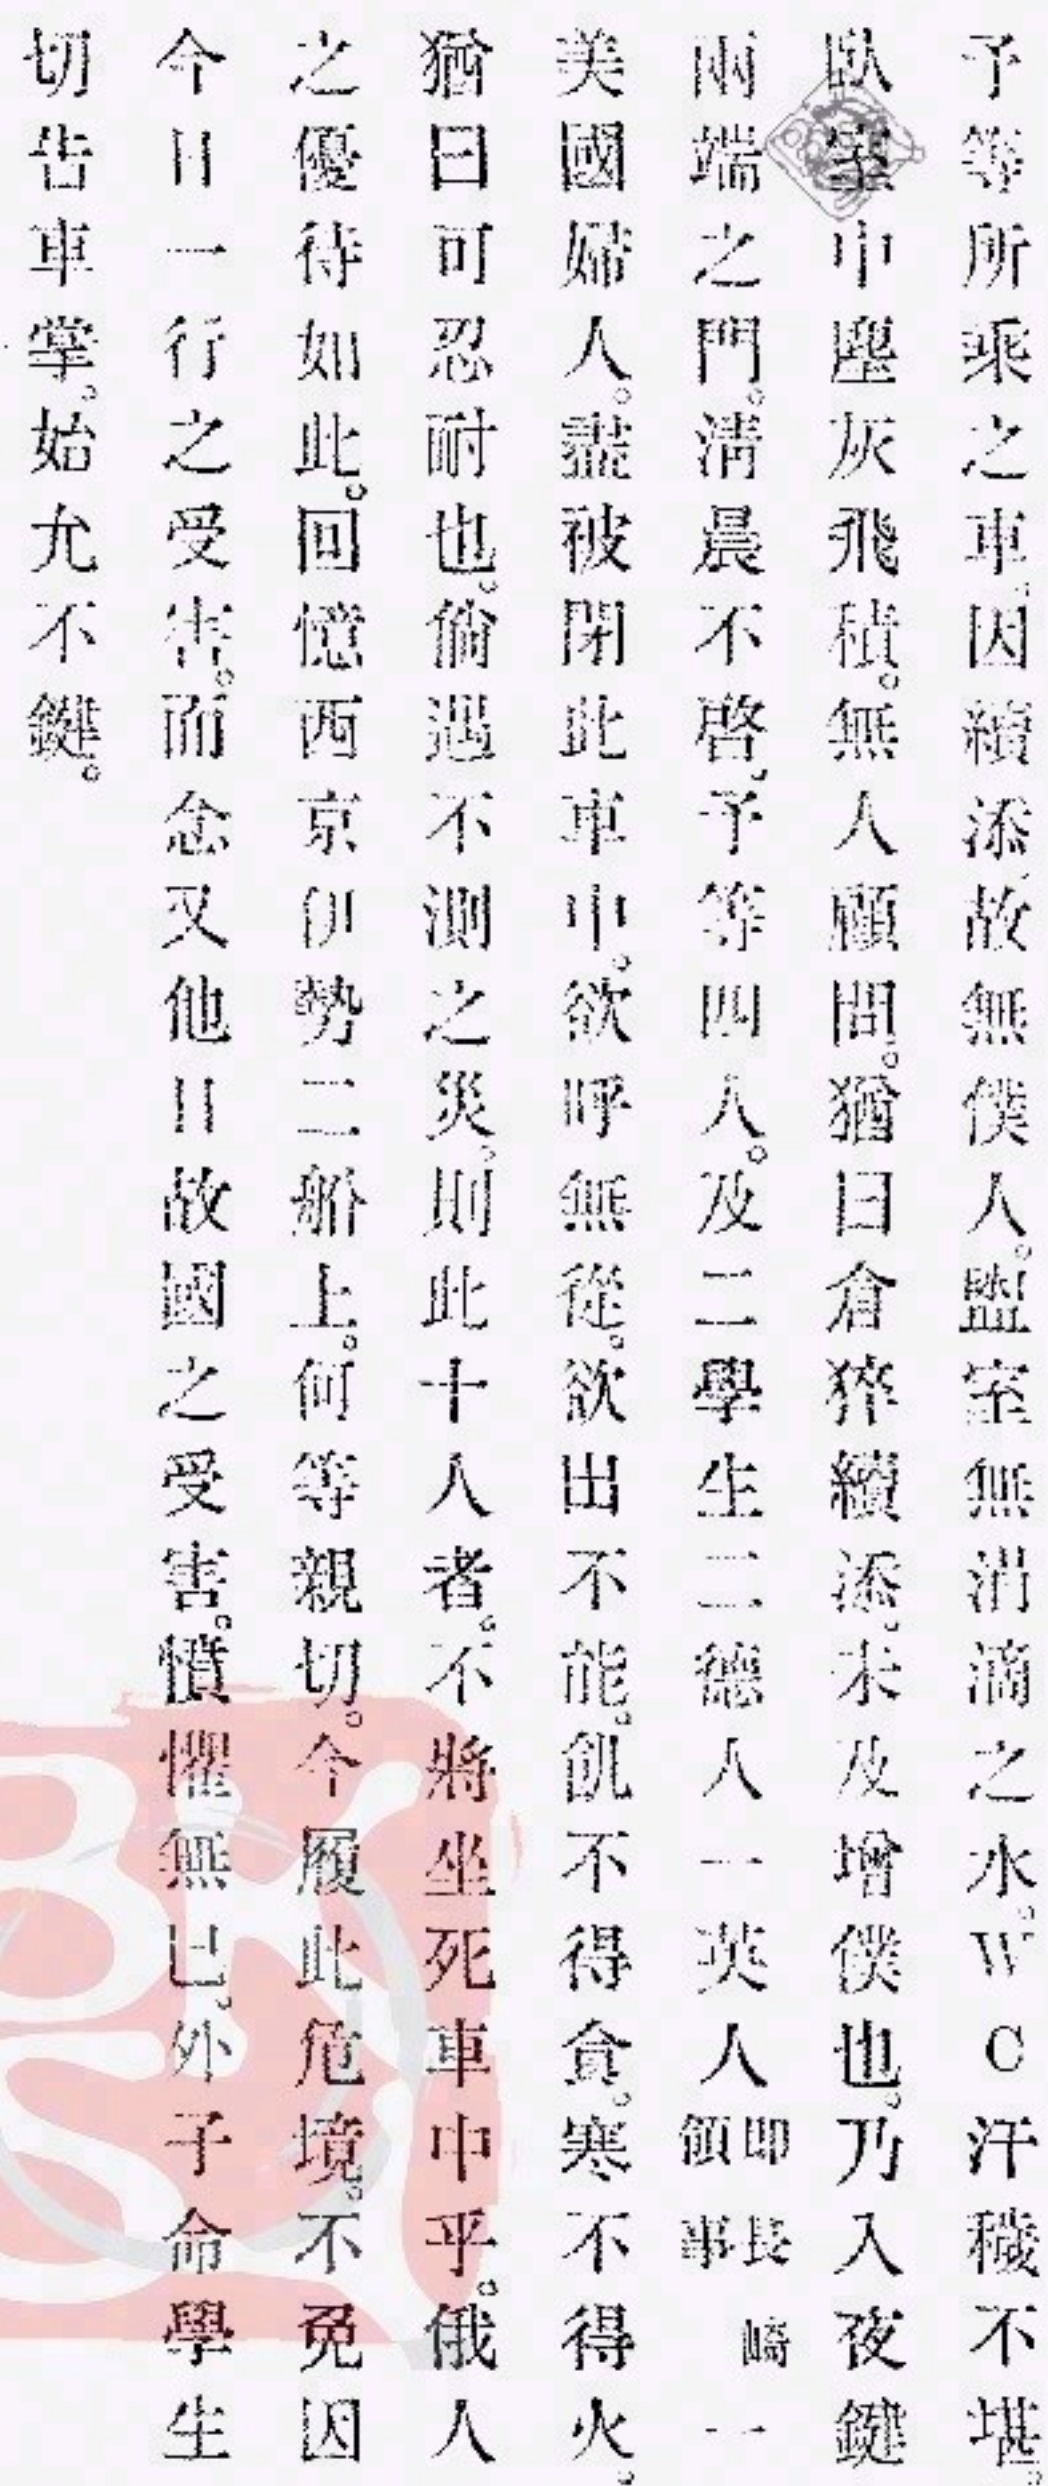 予等所乘之車。因續添。故無僕人。盥室無涓滴之水。WC汙穢不堪。
臥室中塵灰飛積。無人顧問。猶曰倉猝續添。未及增僕也。乃入夜鍵
兩端之門。淸晨不啓。予等四人。及二學生二德人一英人即長崎領事一
美國婦人。盡被閉此車中。欲呼無從。欲出不能。飢不得食。寒不得火。
猶曰可忍耐也。倘遇不測之災。則此十人者。不將坐死車中乎。俄人
之優待如此。回憶西京伊勢二船上。何等親切。今履此危境。不免因
今日一行之受害。而念又他日故國之受害。憤懼無已。外子命學生
切告車掌。始允不鍵。